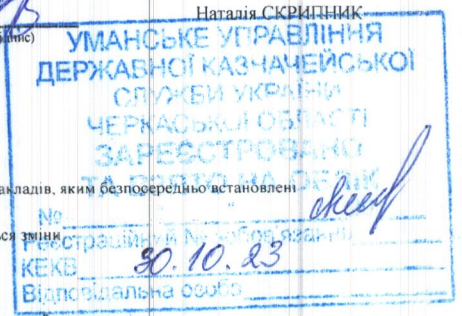 Наталія СКРИПНИК
УМАНСЬКЕ УПРАВЛІННЯ
ДЕРЖАВНОЇ КАЗНАЧЕЙСЬКОЇ
СЛУЖБИ УКРАЇНИ
ЧЕРКАСЬКОЇ ОБЛАСТІ
ЗАРЕЄСТРОВАНО
ТА ВЗЯТО НА ОБЛІК
акладів, яким безпосередньо встановлені
№
ься зміни
Реєстраційний № зобов'язання
КЕКВ 30.10.23
Відповідальна особа